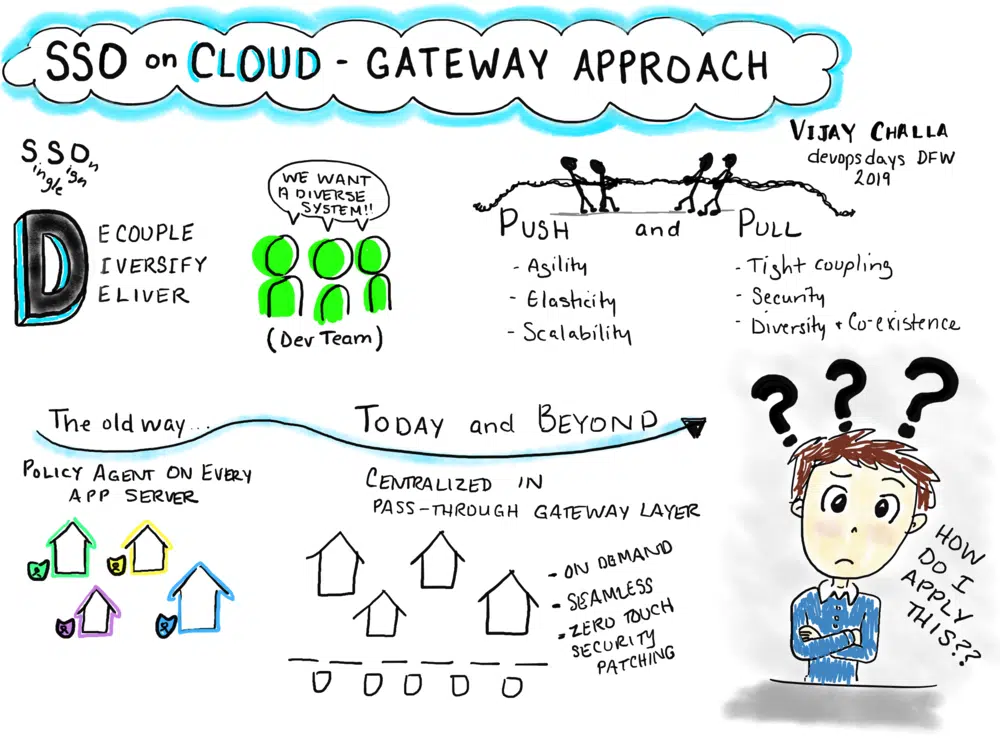 SSO on CLOUD - GATEWAY APPROACH
VIJAY CHALLA
devopsdays DFW
2019
SSOn
ingle
ign
DECOUPLE
DIVERSIFY
DELIVER
WE WANT
A DIVERSE
SYSTEM!!
(Dev Team)
PUSH and PULL
- Agility
- Elasticity
- Scalability
- Tight coupling
- Security
- Diversity + Co-existence
The old way...
TODAY and BEYOND
POLICY AGENT ON EVERY
APP SERVER
CENTRALIZED IN
PASS-THROUGH GATEWAY LAYER
- ON DEMAND
- SEAMLESS
- ZERO TOUCH
SECURITY
PATCHING
???
HOW
DO I
APPLY
THIS??